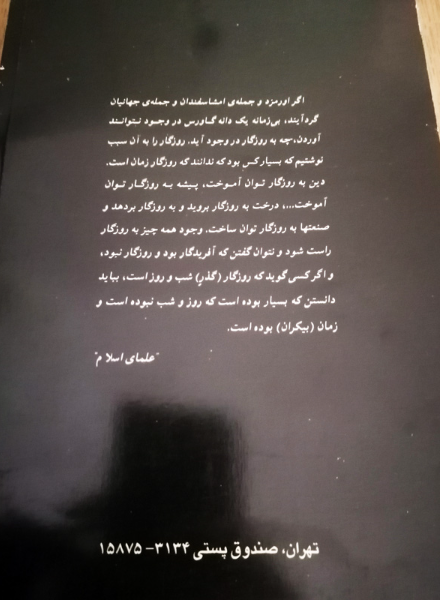 اگر اورمزد و جمله‌ی امشاسفندان و جمله‌ی جهانیان
گرد‌آیند، بی‌زمانه یک دانه گاورس در وجود نتوانند
آوردن، چه به روزگار در وجود آید. روزگار را به آن سبب
نوشتیم که بسیار کس بود که ندانند که روزگار زمان است.
دین به روزگار توان آموخت، پیشه به روزگار توان
آموخت...، درخت به روزگار بروید و به روزگار بر دهد و
صنعتها به روزگار توان ساخت. وجود همه چیز به روزگار
راست شود و نتوان گفتن که آفریدگار بود و روزگار نبود،
و اگر کسی گوید که روزگار (گذر) شب و روز است، بباید
دانستن که بسیار بوده است که روز و شب نبوده است و
زمان (بیکران) بوده است.
"علمای اسلام"
تهران، صندوق پستی ۳۱۳۴-۱۵۸۷۵